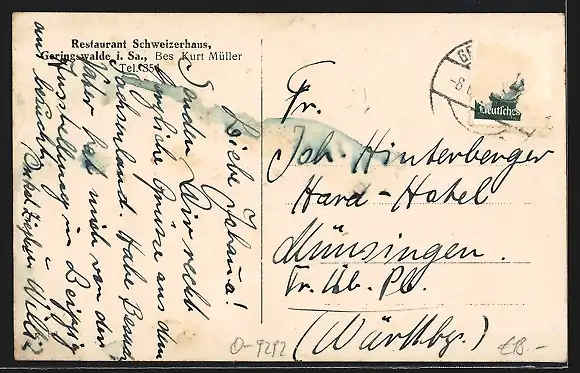 Restaurant Schweizerhaus,
Geringswalde i. Sa., Bes Kurt Müller
Tel. 354
Liebe Johana!
Senden Dir recht
herzliche Grüsse aus dem
Sachsenland. Habe
Vater hat mich von der
Ausstellung in Leipzig
aus
Willy
Deutsches
Fr.
Joh. Hinterberger
Hard-Hotel
Münsingen.
Tr. Üb. Pl.
(Württbg.)
0-9292
€8.-